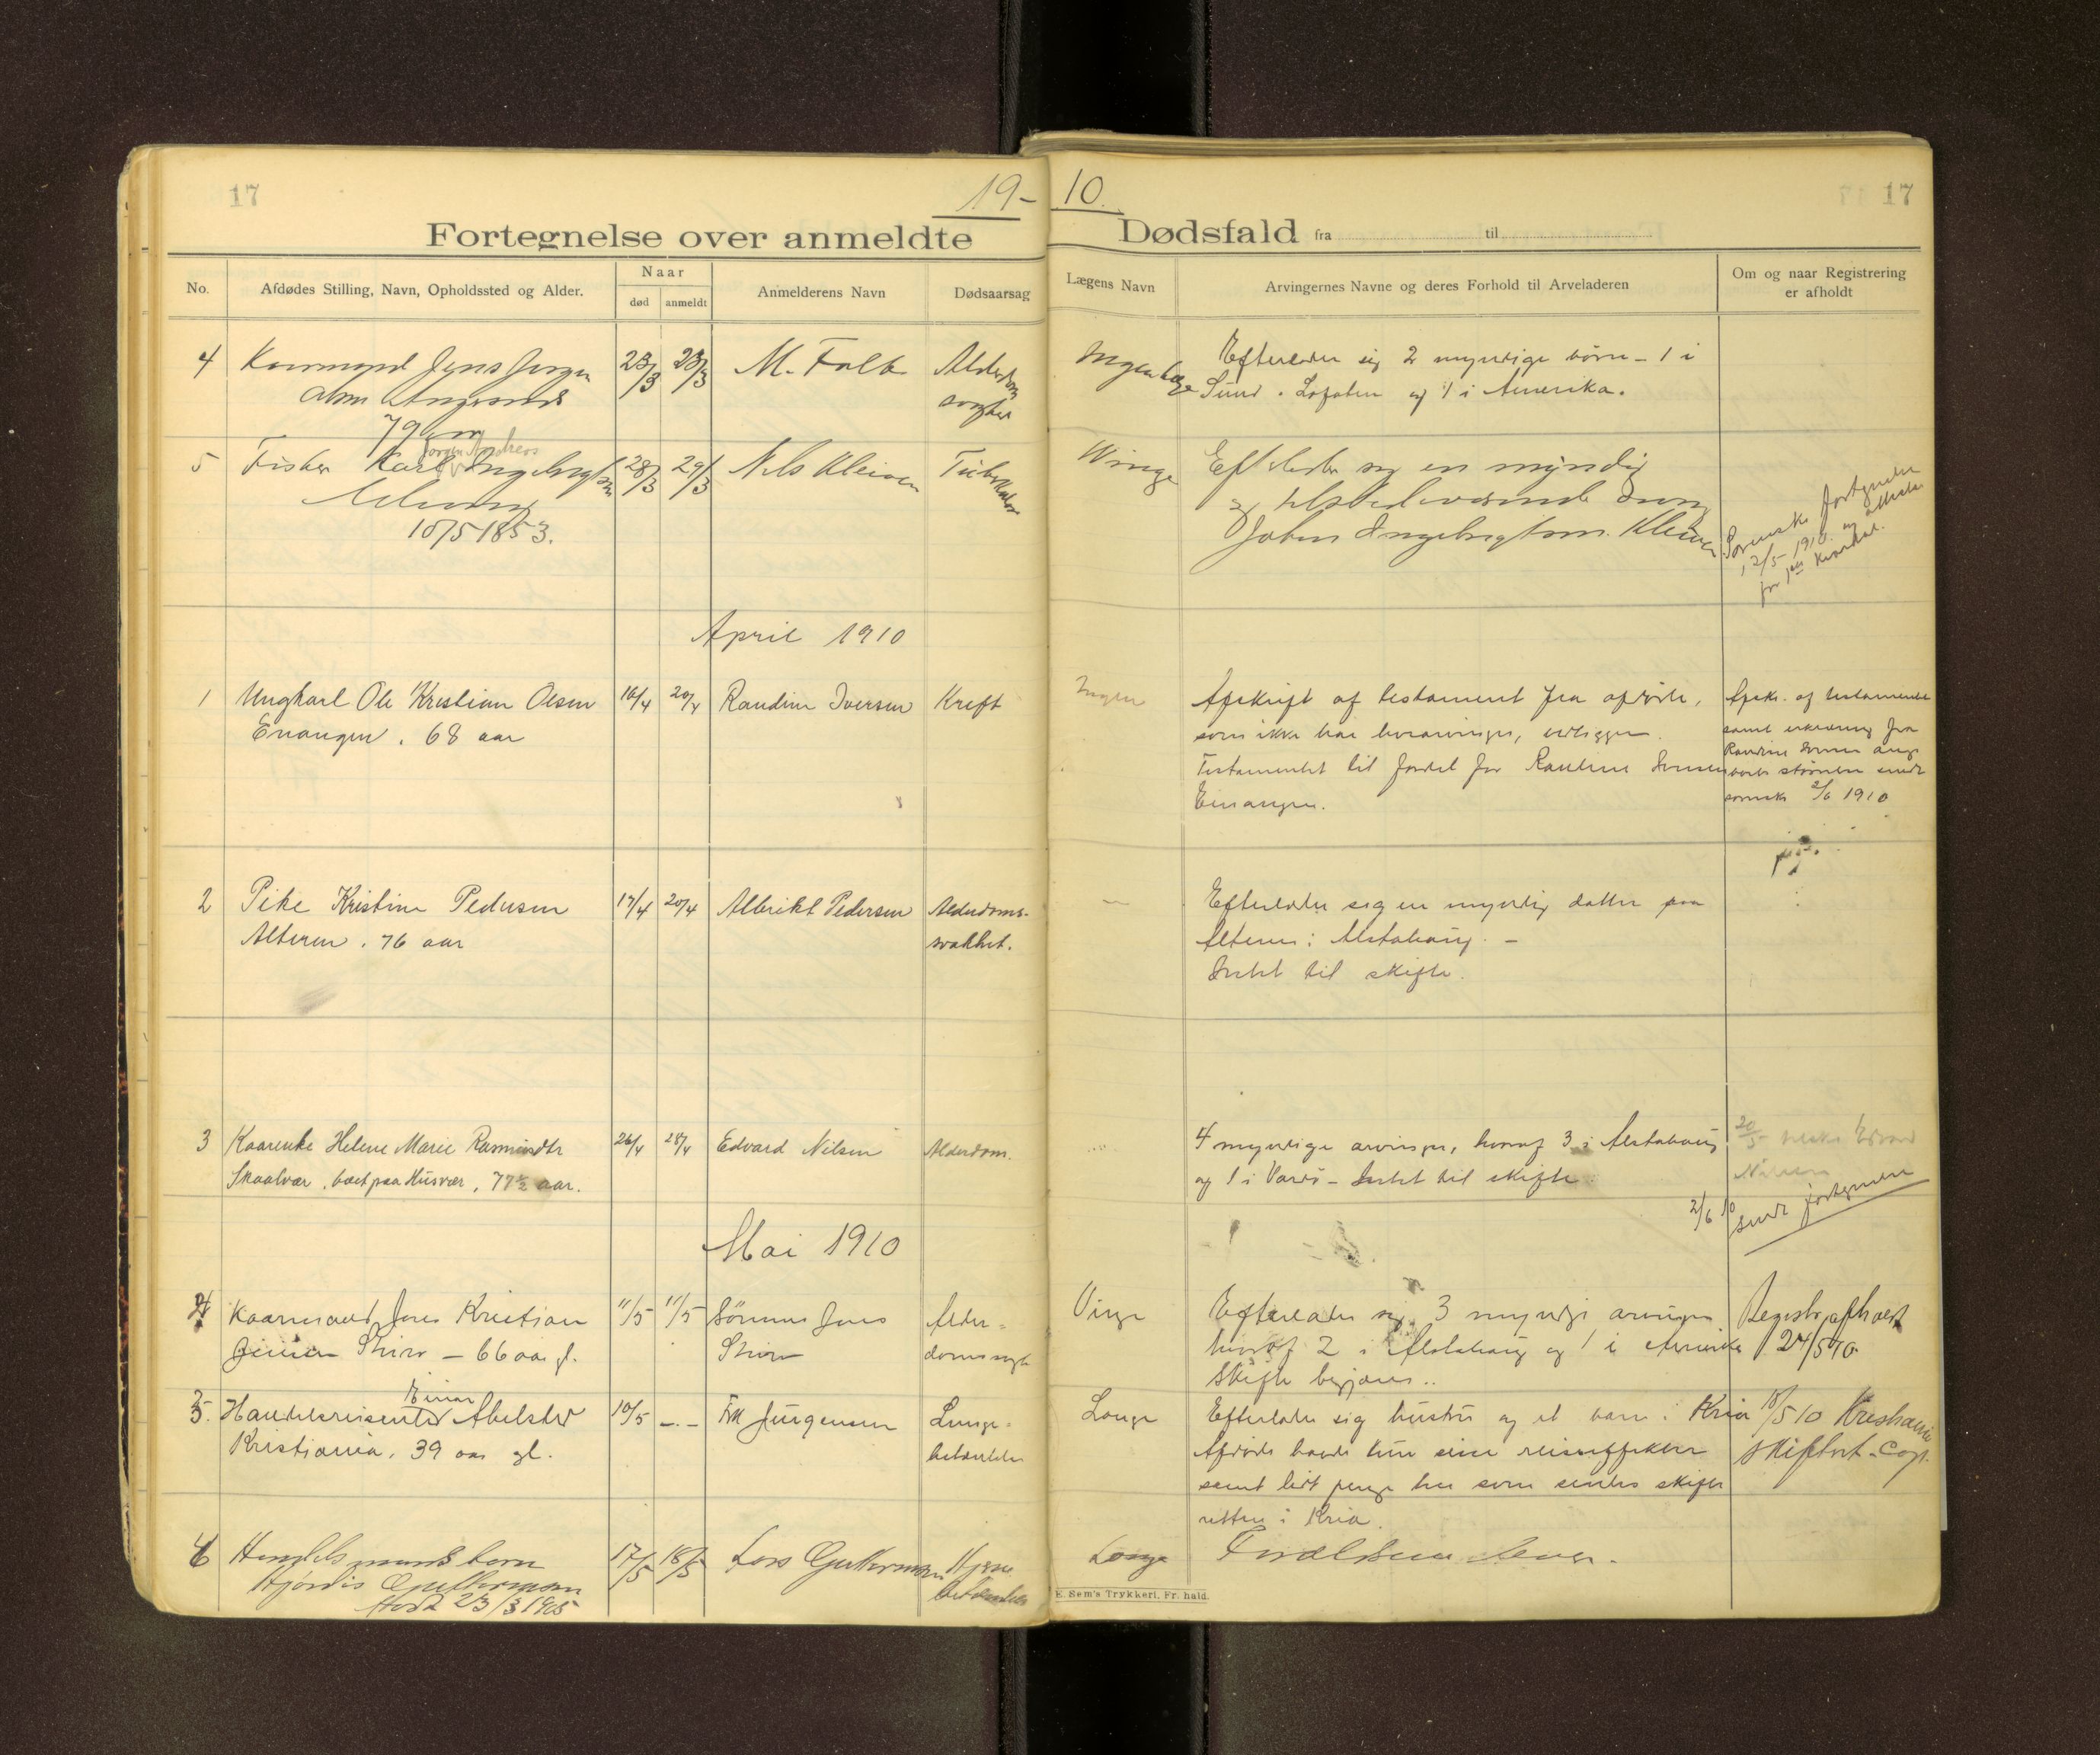 17
19-
10.
17
Fortegnelse over anmeldte
Dødsfald fra til
No.
Afdødes Stilling, Navn, Opholdssted og Alder.
Naar
død
anmeldt
Anmelderens Navn
Dødsaarsag
Lægens Navn
Arvingernes Navne og deres Forhold til Arveladeren
Om og naar Registrering
er afholdt
4
Kaarmand Jens Jørgen
79 aar
23/3
23/3
M. Falk
Alderdom
Ingen læge
Efterlader sig 2 myndige børn - 1 i
Sund. Lofoten og 1 i Amerika.
5
Jørgen Anders
Fisker Karl Ingebrigtsen
10/5 1853.
28/3
29/3
Nils Kleiven
Tuberkulos
Winge
Efterlader sig en myndig
og tilstedeværende søn
Johan Ingebrigtsen Kleiven
Sorensk. fortegnelse
12/5 1910 og attester
for 1ste kvartal.
April 1910
1
Ungkarl Ole Kristian Olsen
Enangen. 68 aar
16/4
20/4
Randine Iversen
Kreft
Ingen
Afskrift af testament fra afdøde,
som ikke har livsarvinger, vedlegges.
Testamentet til fordel for Randine Iversen
Einangen.
Afskr. af testamentet
samt erklæring fra
Randine Iversen ang.
boets størrelse sendt
sorensk. 2/6 1910
2
Pike Kristine Pedersen
Alteren. 76 aar
17/4
20/4
Albrikt Pedersen
Alderdoms-
svakhet.
Efterlader sig en myndig datter paa
Alteren i Alstahaug. -
Intet til skifte.
3
Kaarenke Helene Marie Rasmusdtr
Skaalvær, boet paa Husvær, 77½ aar.
26/4
28/4
Edvard Nilsen
Alderdom.
4 myndige arvinger, hvoraf 3 i Alstahaug
og 1 i Vardø - Intet til skifte
20/5
Nilsen
2/6 10 sendt fortegnelse
Mai 1910
4
Kaarmand Jens Kristian
66 aar gl.
11/5
11/5
Sønnen Jens
Alder=
domssvagh
Vinge
Efterlader sig 3 myndige arvinger
hvoraf 2 i Alstahaug og 1 i Amerika
Skifte begjæres..
Registr. afholdt
24/5 10.
5.
Einar
Handelsreisende Abelsted
Kristiania. 39 aar gl.
10/5
-.-
Frk Jürgensen
Lunge=
betændelse
Lange
Efterlader sig hustru og et barn i Kria
Afdøde havde kun sine reiseeffekter
samt lidt penge her som sendes skifte
retten i Kria.
18/5 10 Kristiania
skifteret. Cop.
6
Handelsmands barn
Hjørdis Guttormsen
født 23/3 1905
17/5
18/5
Lars Guttormsen
Hjerne
betændelse
Lange
Forældrene lever.
E. Sem's Trykkeri, Fr. hald.